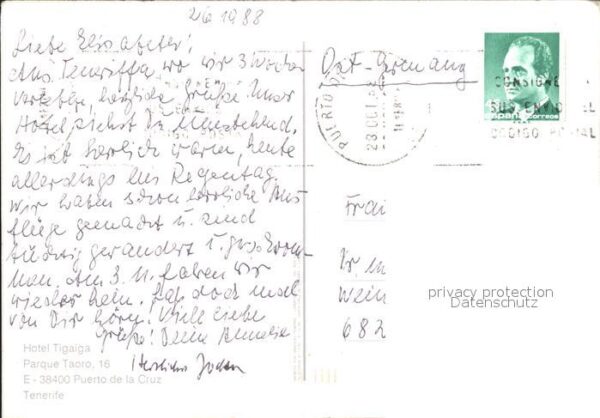 26 1988
Liebe Elisabeter!
Aus Teneriffa, wo wir 3 Wochen
verleben, herzliche Grüße. Unser
Hotel siehst Du umstehend.
Es ist herrlich warm, heute
allerdings ein Regentag.
Wir haben schon herrliche Aus
flüge gemacht u. sind
tüchtig gewandert u. geschwom-
men. Am 3. 11. fahren wir
wieder heim. Laß doch mal
von Dir hören! Viele liebe
Grüße! Deine
Herzlichst
Hotel Tigaiga
Parque Taoro, 16
E - 38400 Puerto de la Cruz
Tenerife
PUERTO
28 OCT
CONSIGNE
SUS ENVIOS
CODIGO POSTAL
España correos
Frau
Wein
682
privacy protection
Datenschutz